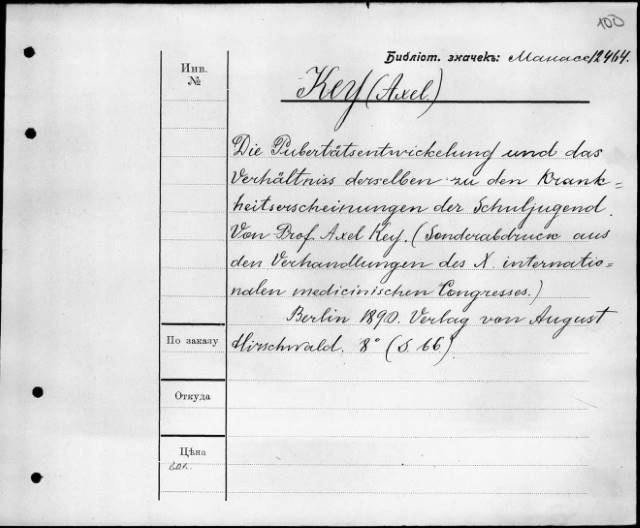 100
Библіот. значекъ: Манасс 12464.
Инв.
№
Key (Axel)
Die Pubertätsentwickelung und das
Verhältniss derselben zu den Krank=
heitserscheinungen der Schuljugend.
Von Prof. Axel Key. (Sonderabdruck aus
den Verhandlungen des X. internatio=
nalen medicinischen Congresses.)
Berlin 1890. Verlag von August
По заказу
Hirschwald. 8° (S. 66)
Откуда
Цѣна